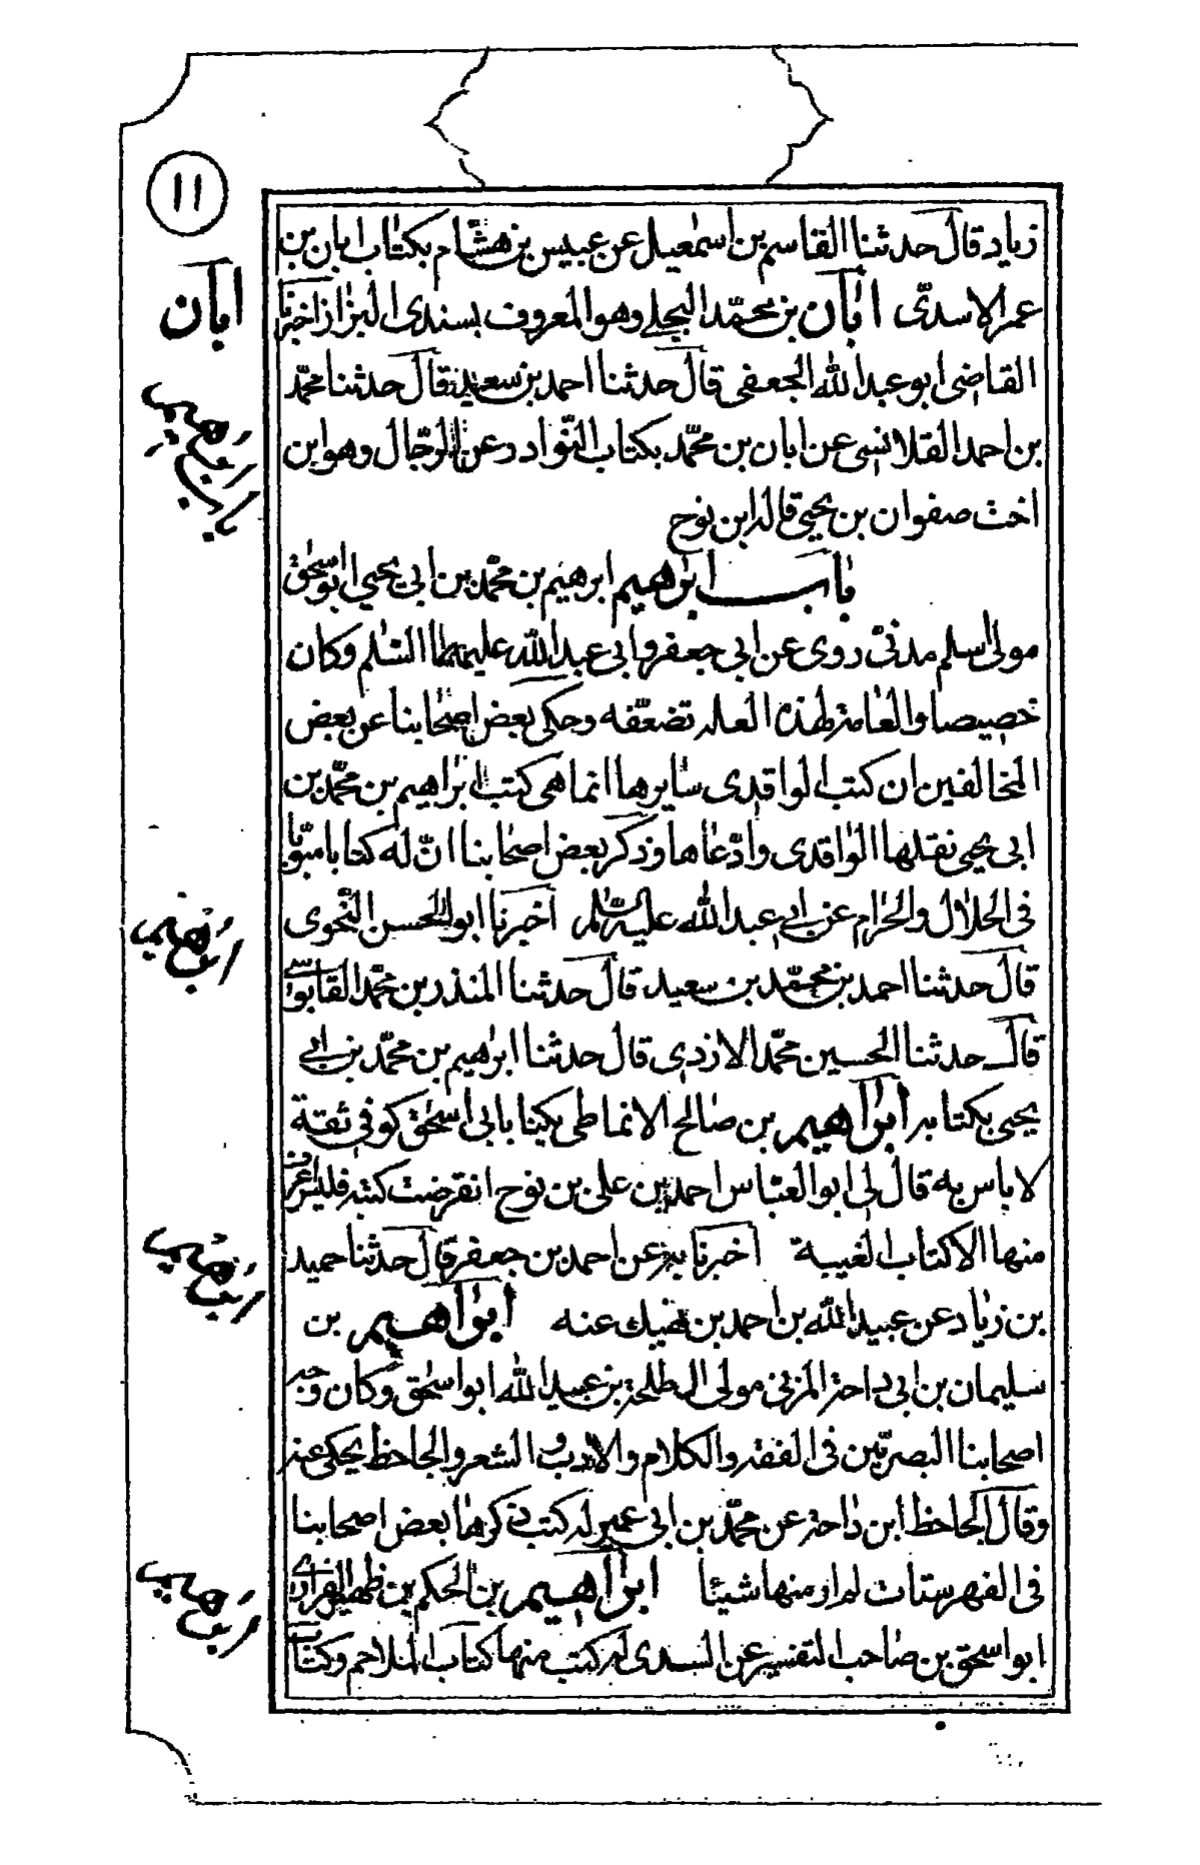 ١١
زياد قال حدثنا القاسم بن اسمعيل عن عبيس بن هشام بكتاب ابان بن
عمر الاسدى ابان بن محمد البجلى وهو المعروف بسندى البزاز اخبرنا
ابان
القاضى ابو عبد الله الجعفى قال حدثنا احمد بن سعيد قال حدثنا محمد
بن احمد القلانسى عن ابان بن محمد بكتاب النوادر عن الرجال وهو ابن
باب ابرهيم
اخت صفوان بن يحيى قاله ابن نوح
باب ابراهيم ابرهيم بن محمد بن ابى يحيى ابو اسحق
مولى اسلم مدنى روى عن ابى جعفر وابى عبد الله عليهما السلم وكان
خصيصا والعامة لهذه العله تضعفه وحكى بعض اصحابنا عن بعض
المخالفين ان كتب الواقدى سايرها انما هى كتب ابراهيم بن محمد بن
ابى يحيى نقلها الواقدى وادعاها وذكر بعض اصحابنا ان له كتابا مبوبا
فى الحلال والحرام عن ابى عبد الله عليه السلم اخبرنا ابو الحسن النحوى
ابرهيم
قال حدثنا احمد بن محمد بن سعيد قال حدثنا المنذر بن محمد القابوسى
قال حدثنا الحسين محمد الازدى قال حدثنا ابرهيم بن محمد بن ابى
يحيى بكتابه ابراهيم بن صالح الانماطى يكنا بابى اسحق كوفى ثقة
لا باس به قال لى ابو العباس احمد بن على بن نوح انقرضت كتبه فليس اعرف
منها الا كتاب الغيبة اخبرنا به عن احمد بن جعفر قال حدثنا حميد
ابرهيم
بن زياد عن عبيد الله بن احمد بن نهيك عنه ابراهيم بن
سليمان بن ابى داحة المزنى مولى ال طلحة بن عبيد الله ابو اسحق وكان وجه
اصحابنا البصريين فى الفقه والكلام والادب والشعر والجاحظ يحكى عنه
وقال الجاحظ ابن داحة عن محمد بن ابى عمير له كتب ذكرها بعض اصحابنا
فى الفهرستات لم ار منها شيئا ابراهيم بن الحكم بن ظهير الفزارى
ابرهيم
ابو اسحق بن صاحب التفسير عن السدى له كتب منها كتاب الملاحم وكتاب